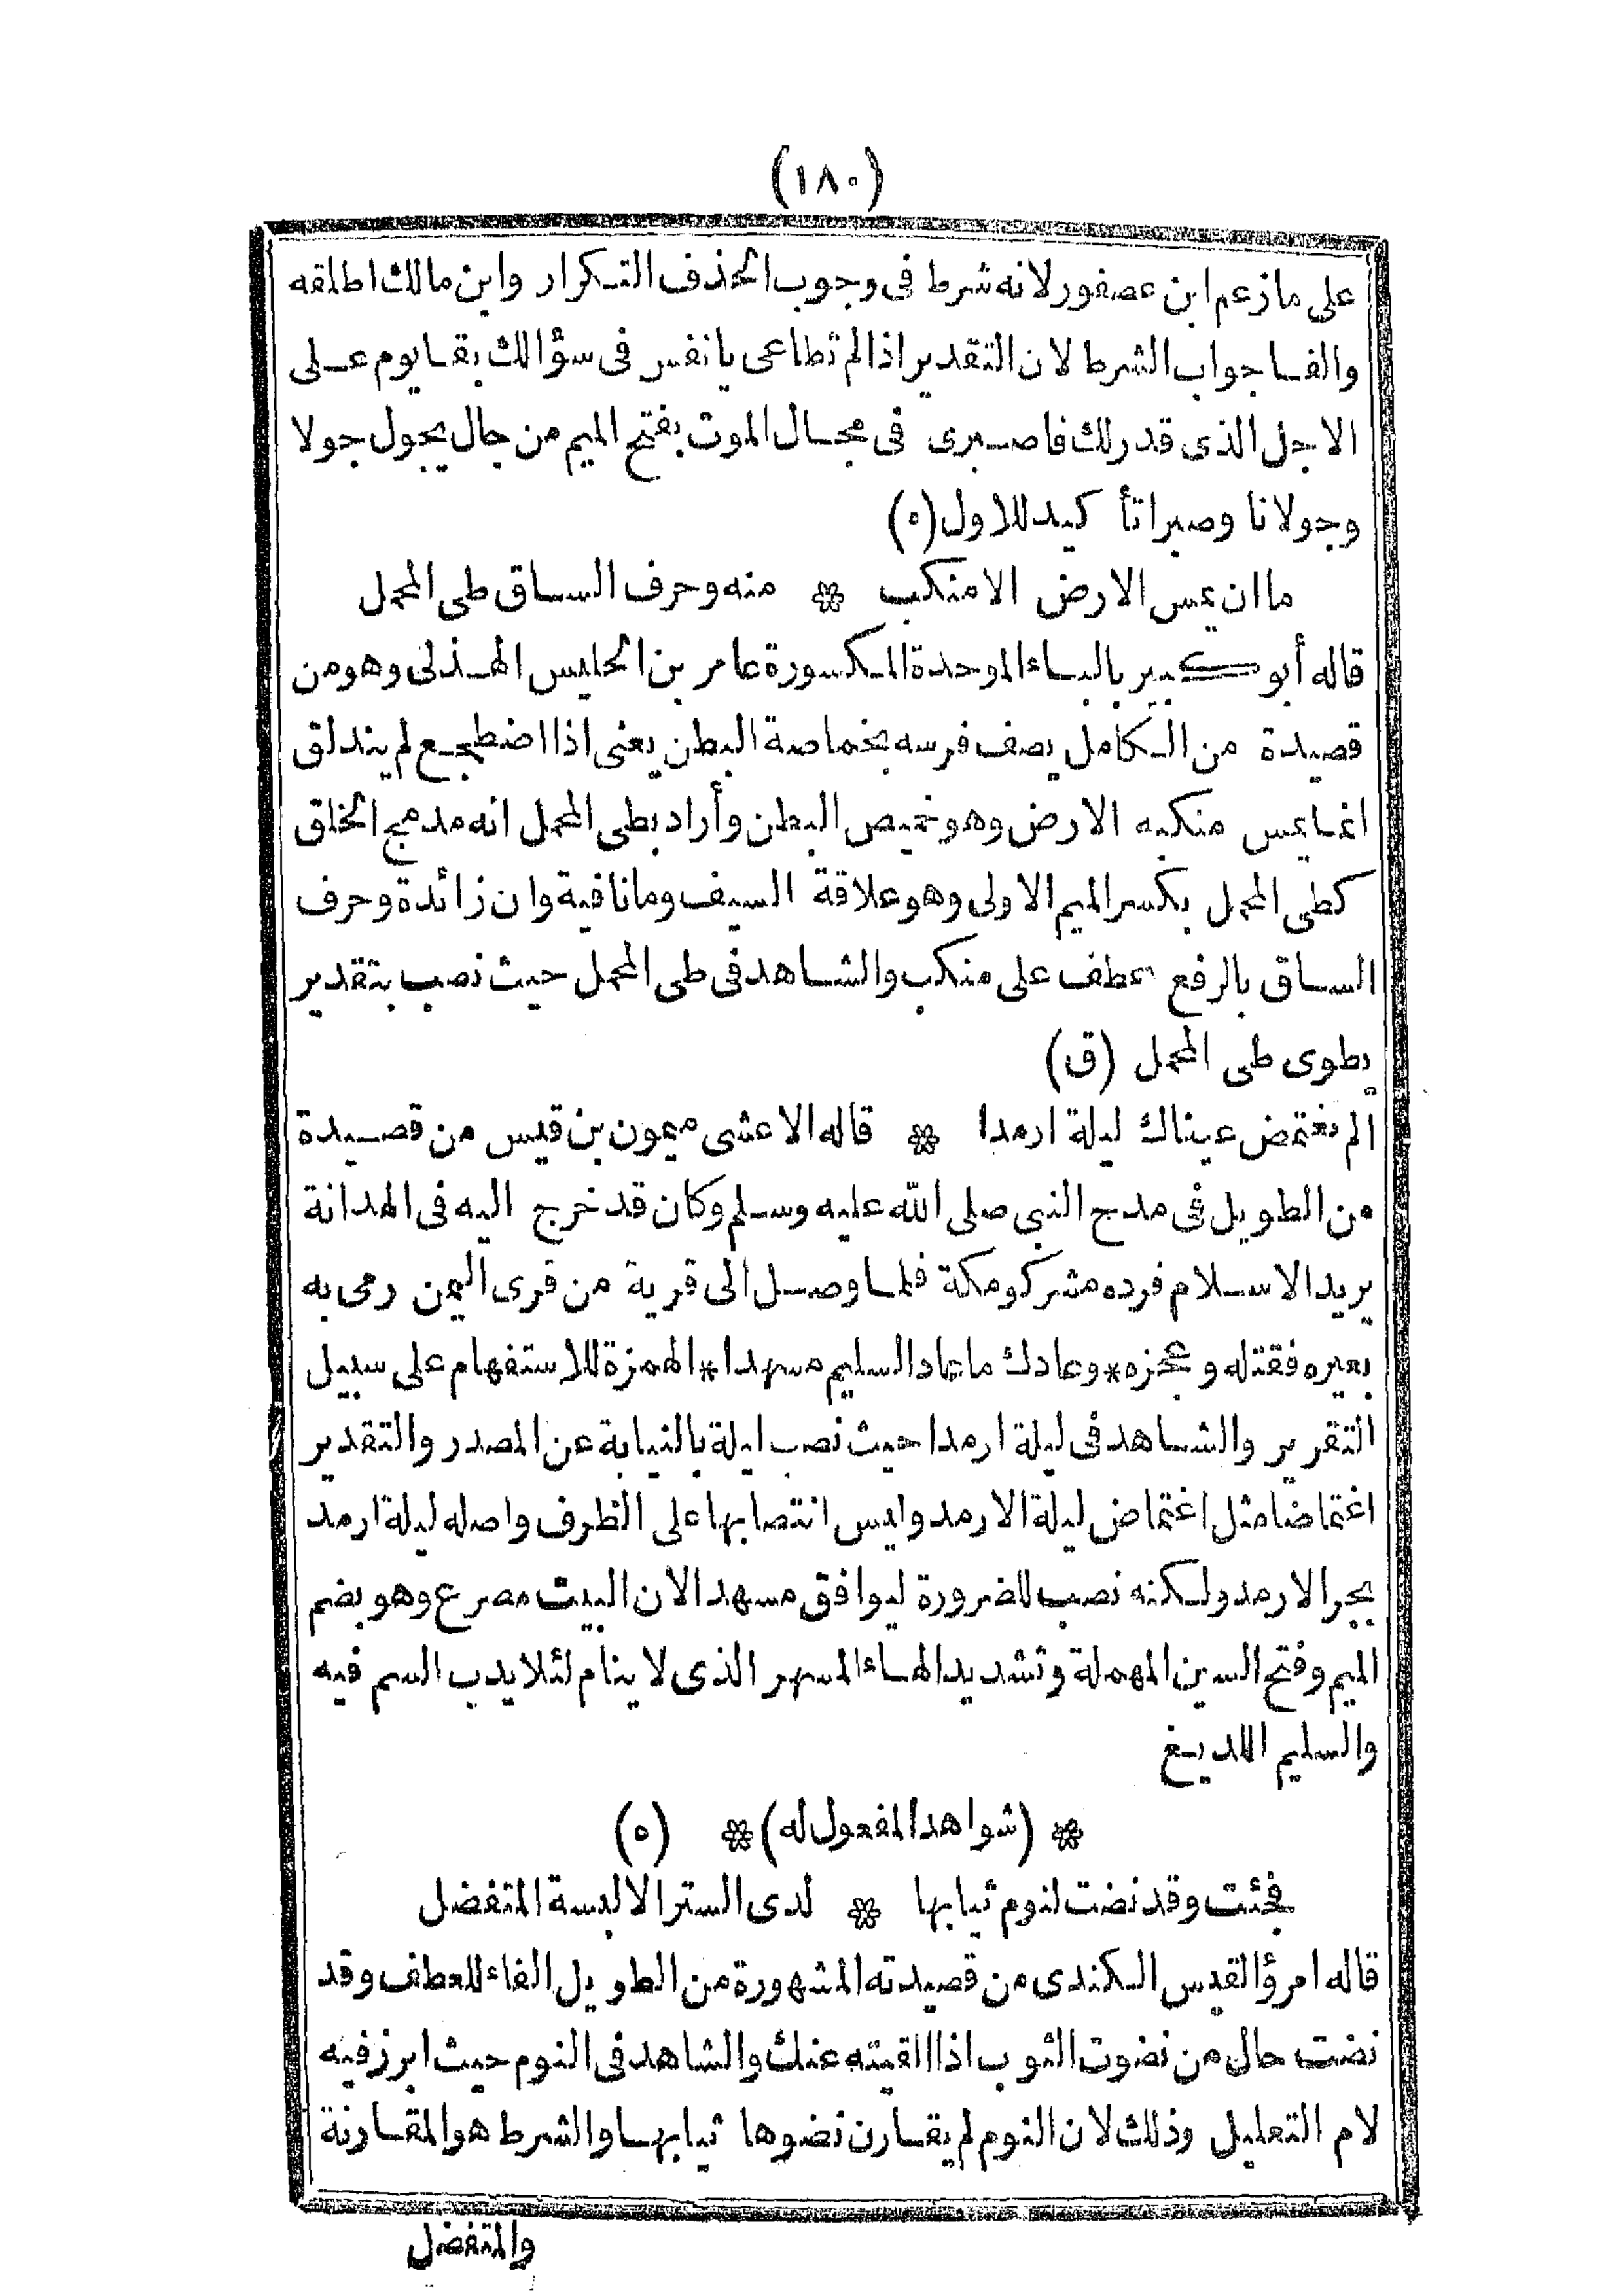 (١٨٠)
على ما زعم ابن عصفور لانه شرط فى وجوب الحذف التكرار وابن مالك اطلقه
والفا جواب الشرط لان التقدير اذا لم تطاعى يا نفس فى سؤالك بقا يوم على
الاجل الذى قدر لك فاصبرى فى مجال الموت بفتح الميم من جال يجول جولا
وجولانا وصبرا تأكيد للاول (ه)
ما ان يمس الارض الا منكب * منه وحرف الساق طى المحمل
قاله أبو كبير بالباء الموحدة المكسورة عامر بن الحليس الهذلى وهو من
قصيدة من الكامل يصف فرسه بخماصة البطن يعنى اذا اضطجع لم يندلق
انما يمس منكبه الارض وهو خميص البطن وأراد بطى المحمل انه مدمج الخلق
كطى المحمل بكسر الميم الاولى وهو علاقة السيف وما نافية وان زائدة وحرف
الساق بالرفع عطف على منكب والشاهد فى طى المحمل حيث نصب بتقدير
يطوى طى المحمل (ق)
ألم تغتمض عيناك ليلة ارمدا * قاله الاعشى ميمون بن قيس من قصيدة
من الطويل فى مدح النبى صلى الله عليه وسلم وكان قد خرج اليه فى الهدانة
يريد الاسلام فرده مشركو مكة فلما وصل الى قرية من قرى اليمن رمى به
بعيره فقتله وعجزه * وعادك ما عاد السليم مسهدا * الهمزة للاستفهام على سبيل
التقرير والشاهد فى ليلة ارمدا حيث نصب ليلة بالنيابة عن المصدر والتقدير
اغتماضا مثل اغتماض ليلة الارمد وليس انتصابها على الظرف واصله ليلة ارمد
بجر الارمد ولكنه نصب للضرورة ليوافق مسهدا لان البيت مصرع وهو بضم
الميم وفتح السين المهملة وتشديد الهاء المسهر الذى لا ينام لئلا يدب السم فيه
والسليم اللديغ
* (شواهد المفعول له) * (ه)
فجئت وقد نضت لنوم ثيابها * لدى الستر الا لبسة المتفضل
قاله امرؤ القيس الكندى من قصيدته المشهورة من الطويل الفاء للعطف وقد
نضت حال من نضوت الثوب اذا القيته عنك والشاهد فى النوم حيث ابرز فيه
لام التعليل وذلك لان النوم لم يقارن نضوها ثيابها والشرط هو المقارنة
والمتفضل